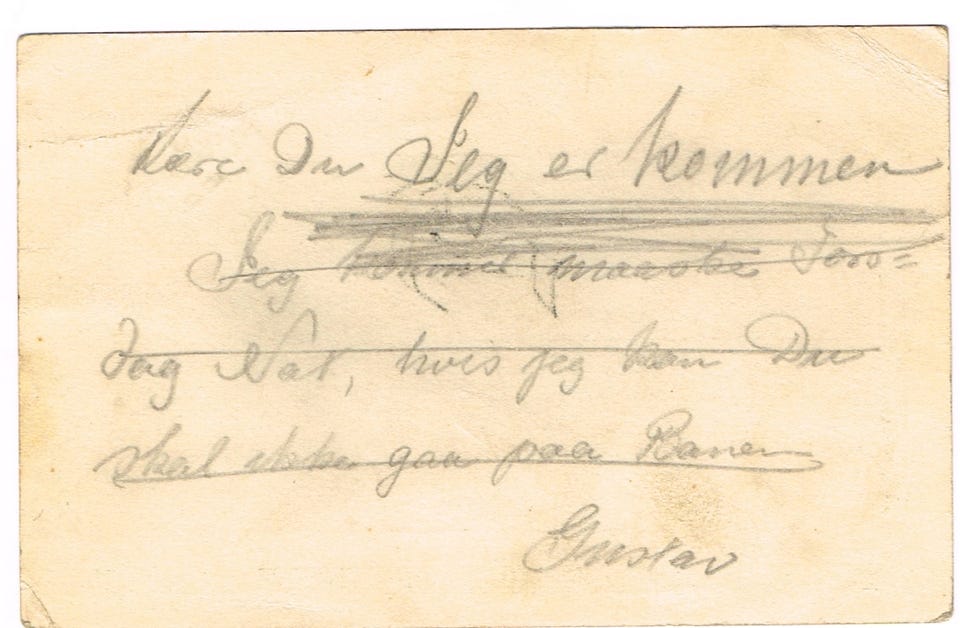 Kære Du Jeg er kommen
Jeg kommer maaske Tors=
dag Nat, hvis jeg kan Du
skal ikke gaa paa Banen
Gustav